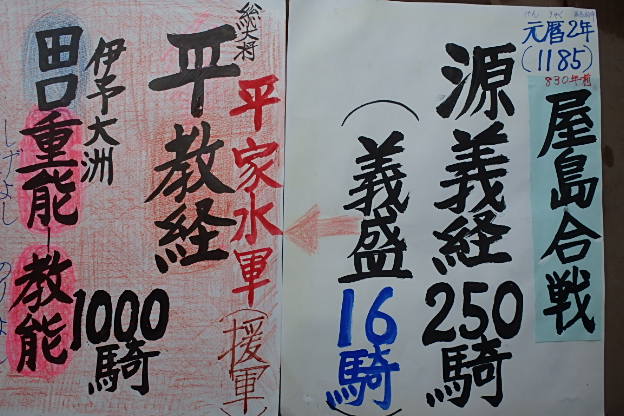 元暦2年
(1185)
830年前
屋島合戦
源義経
250騎
(義盛
16騎)
平家水軍(援軍)
総大将
平教経
伊予大洲
1000騎
田口重能-教能
しげよし のりよし